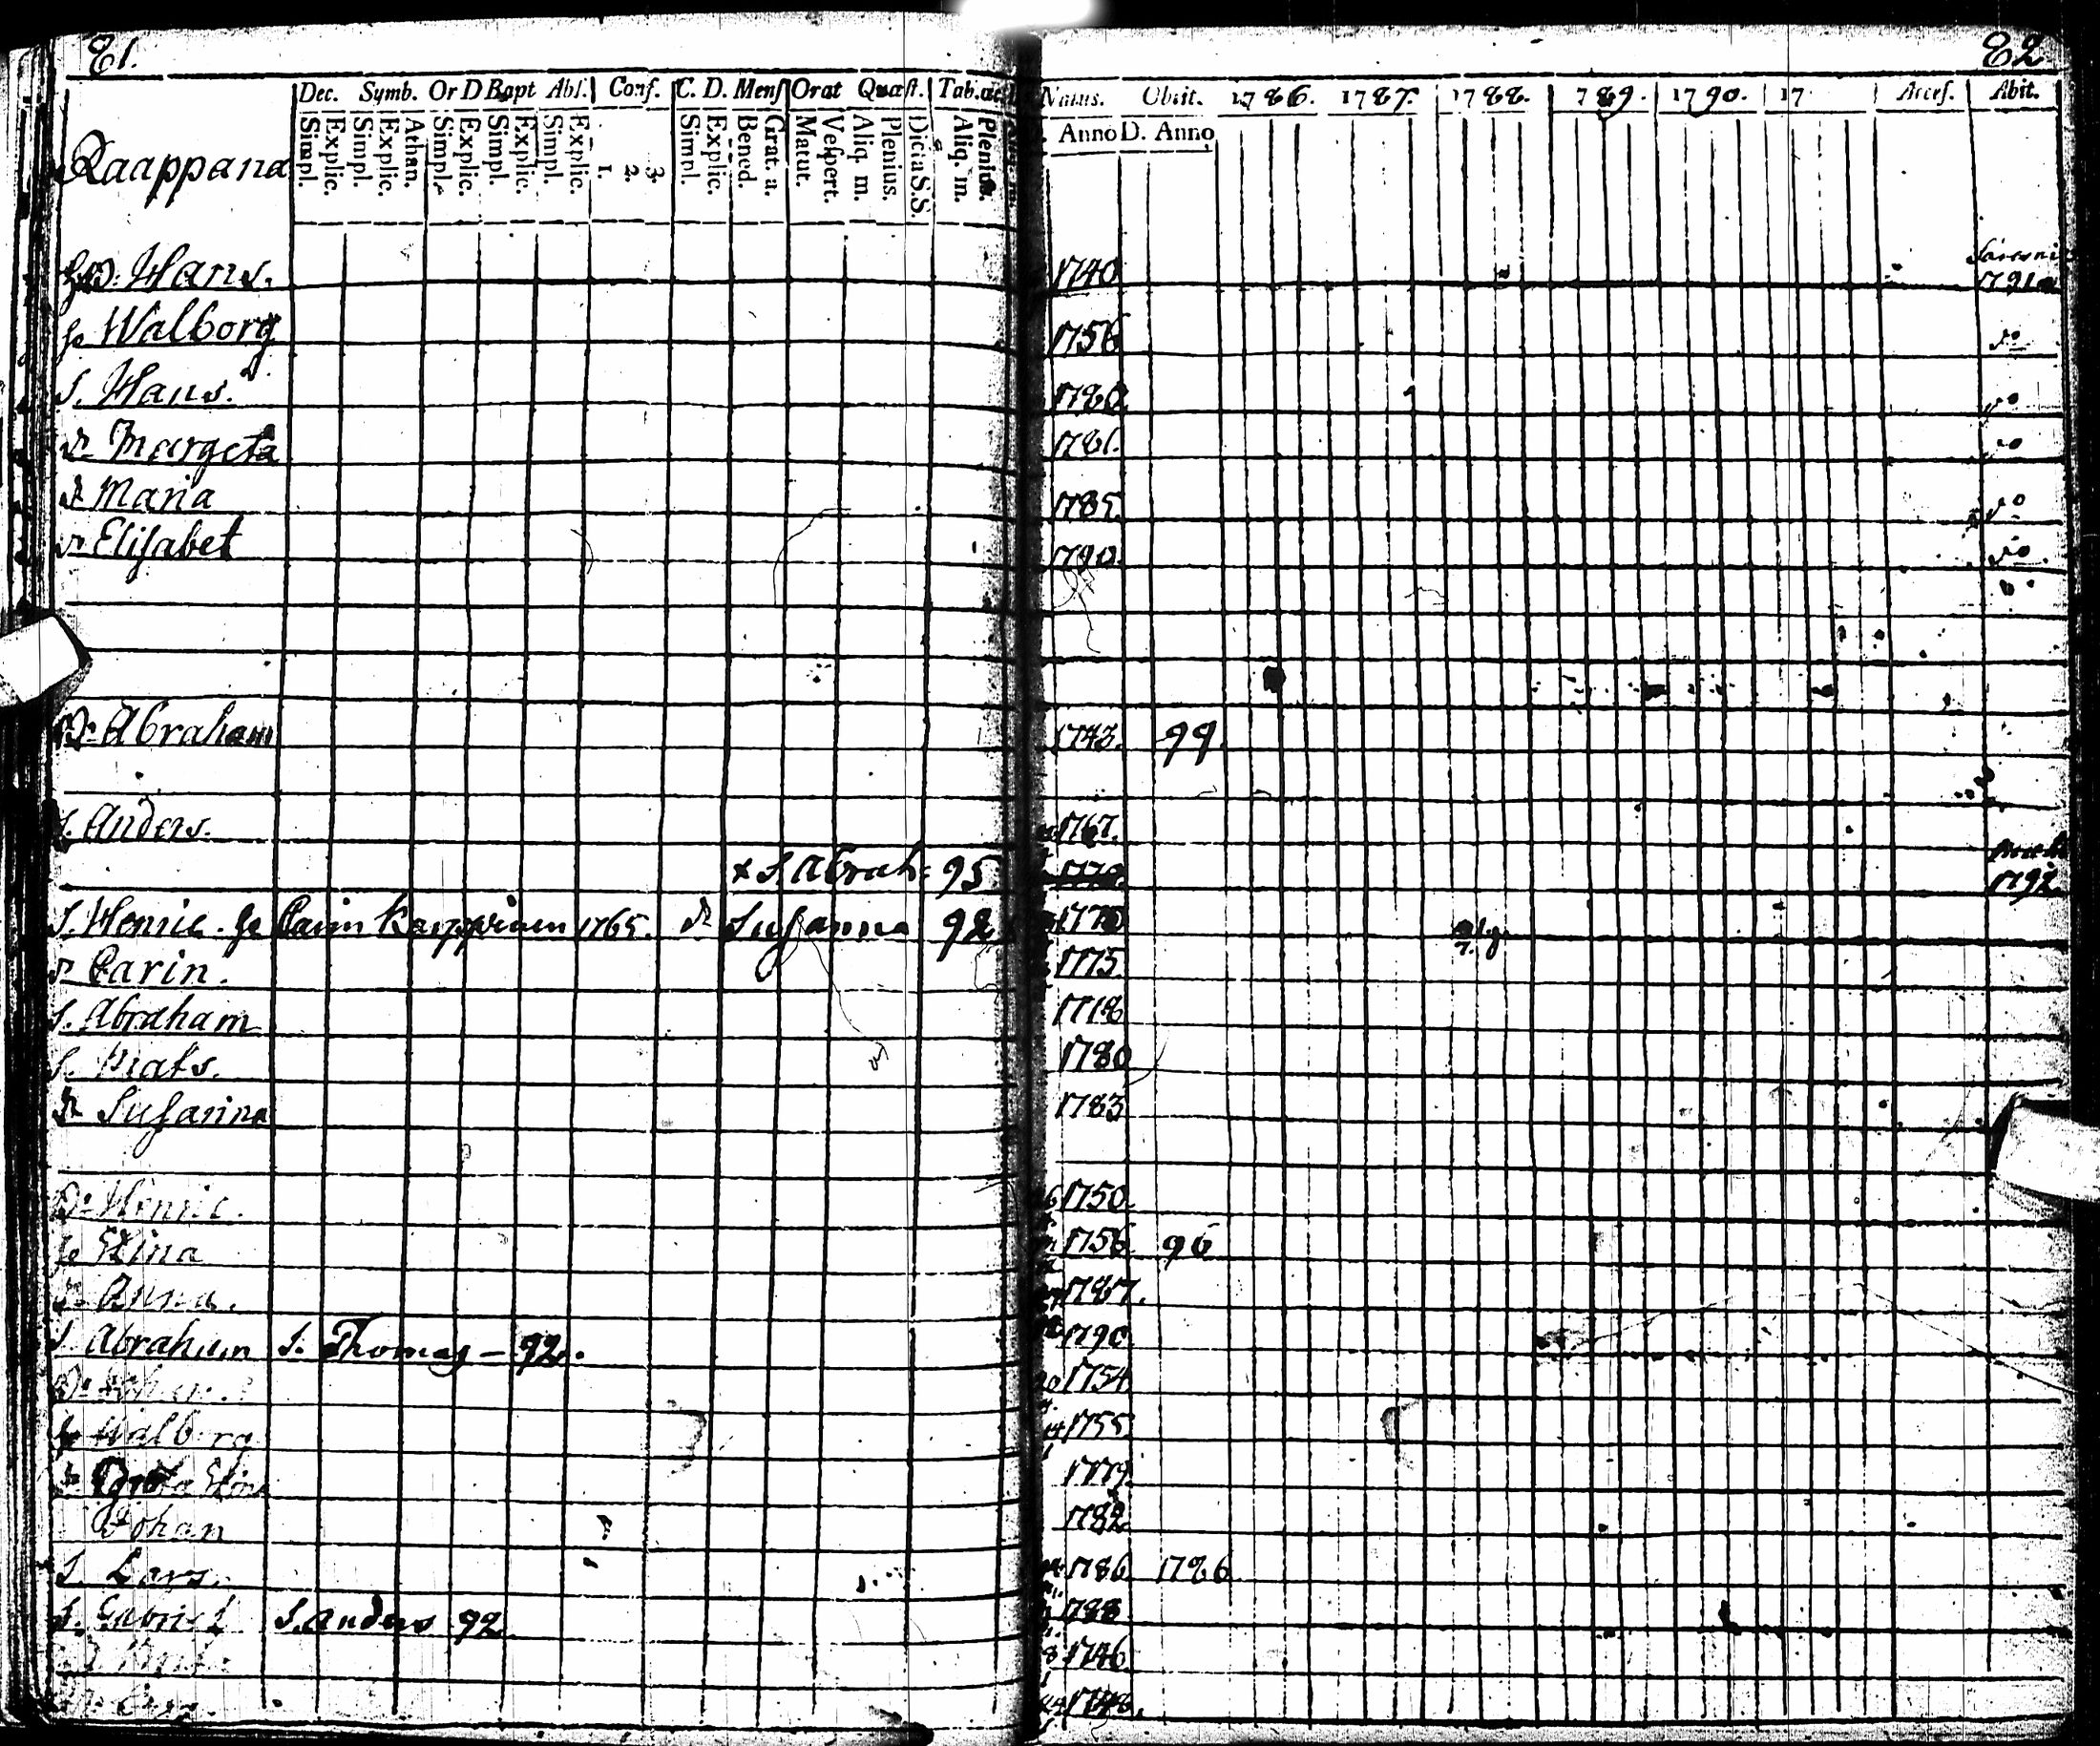 81.
82
Dec. Symb. Or D Bapt Abs. Conf. C. D. Mens Orat Quæst. Tab. œc
Natus. Obiit. 1786. 1787. 1788. 1789. 1790. 17 Acces. Abit.
Simpl. Explic. Simpl. Explic. Athan. Simpl. Explic. Simpl. Explic. Simpl. Explic. 1. 2. 3. Simpl. Explic. Bened. Grat. a. Matut. Vespert. Aliq. m. Plenius. Dicta S.S. Aliq. m. Plenius.
Anno D. Anno
Kaappana
Hans. 1740 1791
Walborg 1756 do
S. Hans. 1780 do
dr Margeta 1781. do
dr Maria 1785. do
dr Elisabet 1790. do
Dr Abraham 1743. 99.
S. Anders. 1767.
x S. Abrah: 95 1792
S. Henric. h Carin Kauppinen 1765. dr Susanna 92
dr Carin. 1775.
S. Abraham 1778
S. Mats. 1780
dr Susanna 1783
Dr Henric. 1750.
h Elina 1756 96
dr Anna. 1787.
S Abraham S. Thomas – 92. 1790
1754
h Walborg 1755
1779.
Johan 1782
S. Lars. 1786 1786
S. Gabriel S. Anders 92 1788
1746
1748.